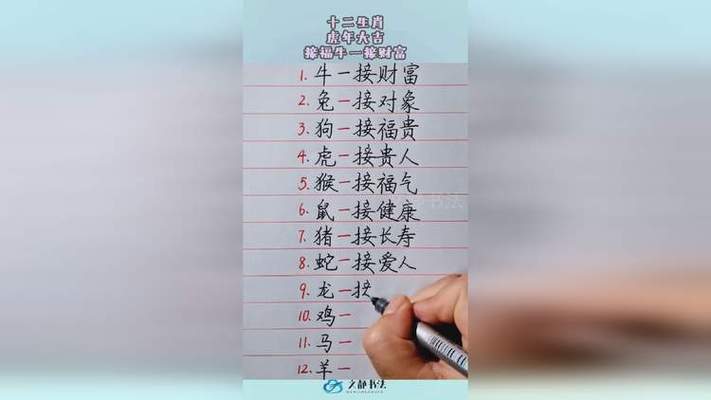 十二生肖
虎年大吉
接福牛一接财富
1. 牛一接财富
2. 兔一接对象
3. 狗一接福贵
4. 虎一接贵人
5. 猴一接福气
6. 鼠一接健康
7. 猪一接长寿
8. 蛇一接爱人
9. 龙一接
10. 鸡一
11. 马一
12. 羊一
文静书法